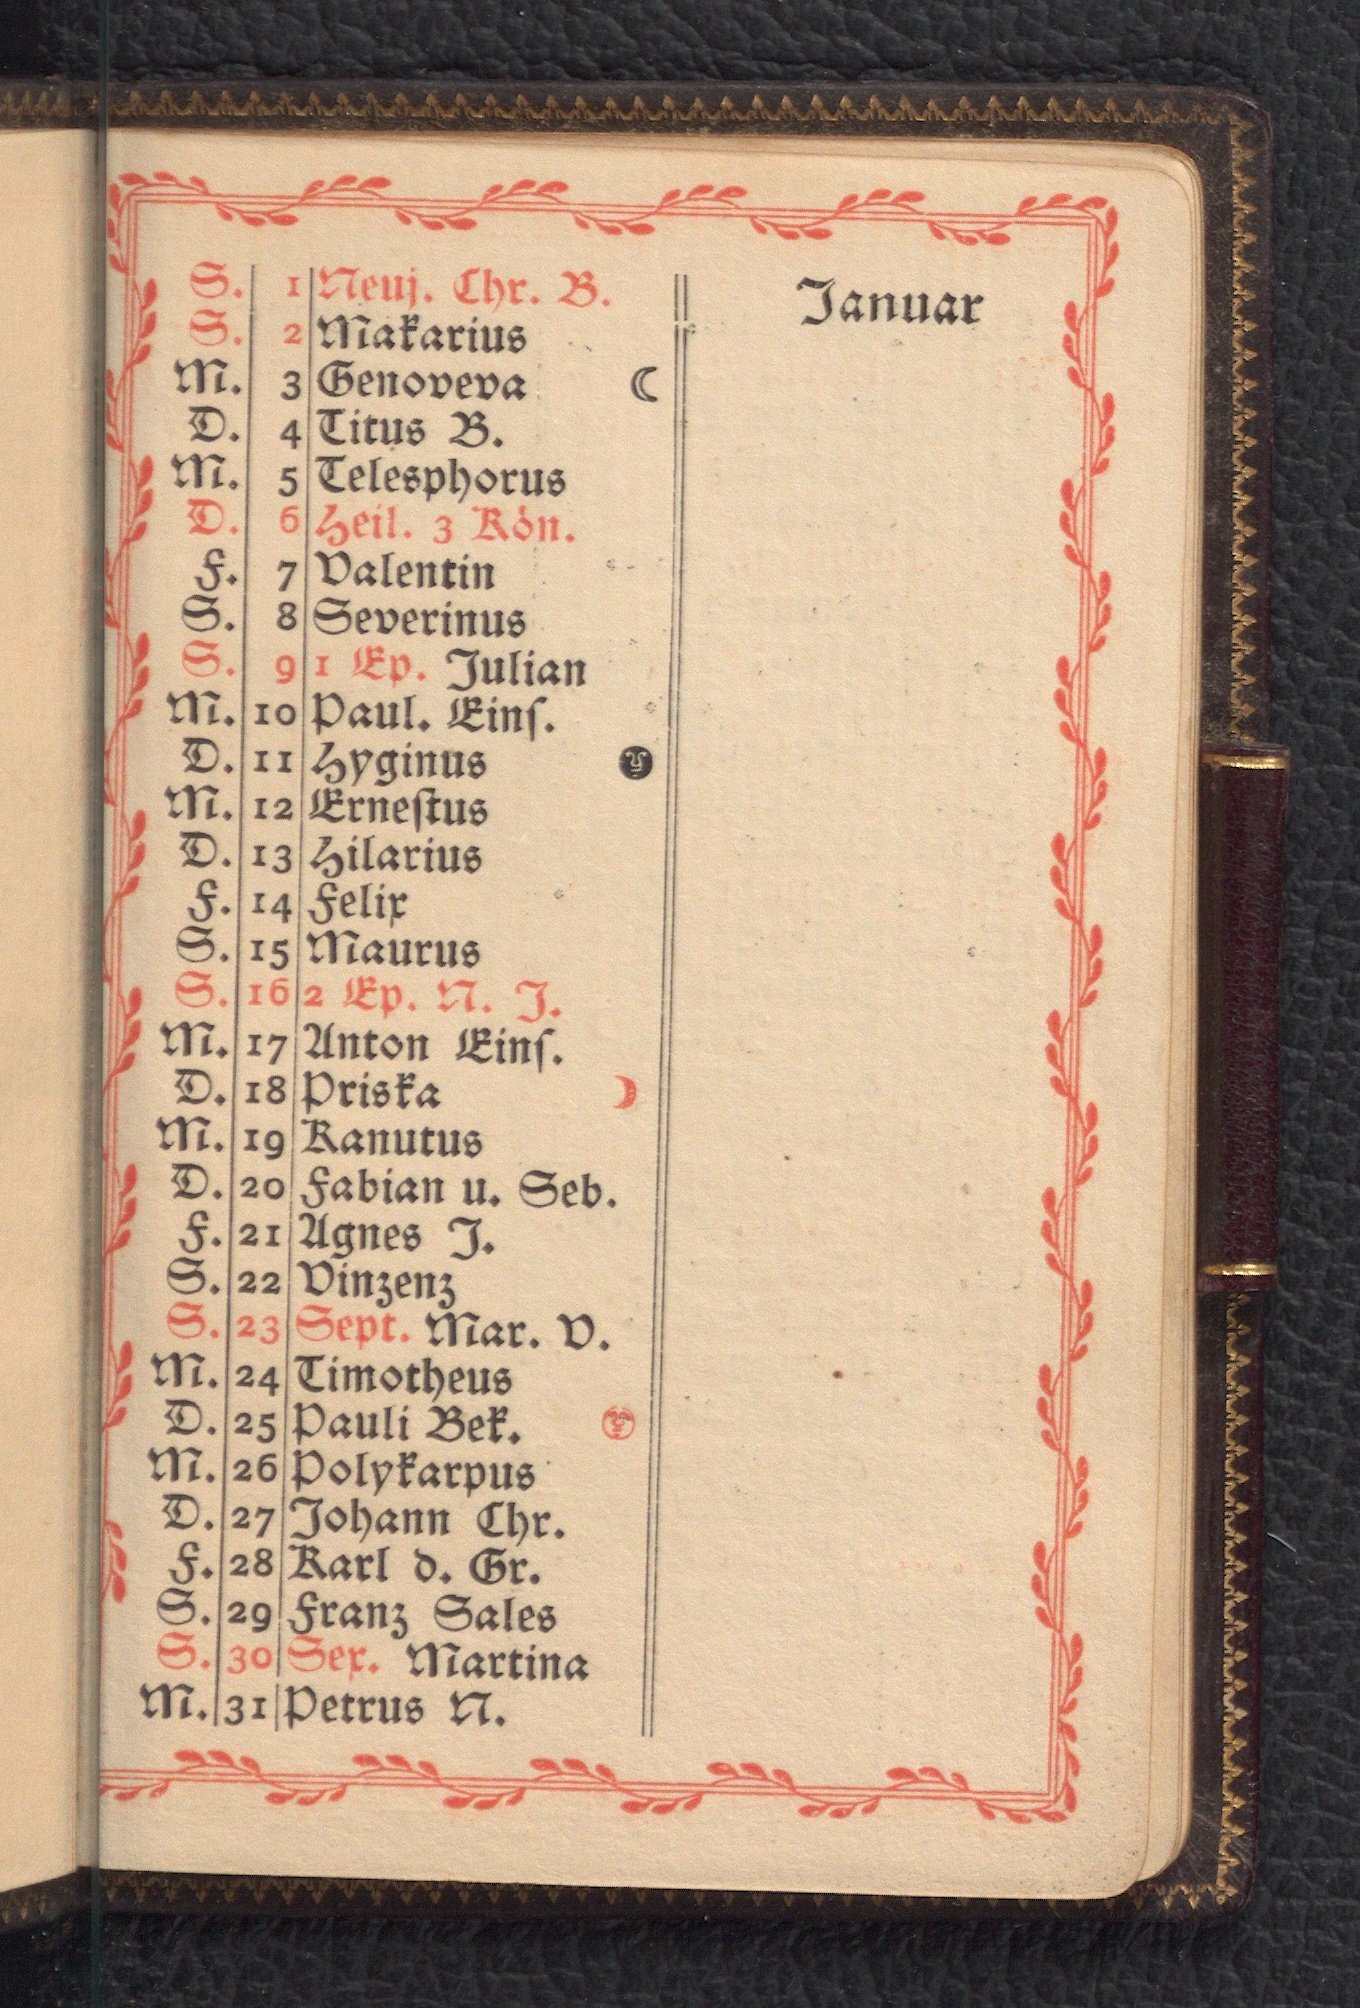 Januar
S. 1 Neuj. Chr. B.
S. 2 Makarius
M. 3 Genoveva ☾
D. 4 Titus B.
M. 5 Telesphorus
D. 6 Heil. 3 Kön.
F. 7 Valentin
S. 8 Severinus
S. 9 1 Ep. Julian
M. 10 Paul. Einſ.
D. 11 Hyginus
M. 12 Erneſtus
D. 13 Hilarius
F. 14 Felix
S. 15 Maurus
S. 16 2 Ep. N. J.
M. 17 Anton Einſ.
D. 18 Priska ☽
M. 19 Kanutus
D. 20 Fabian u. Seb.
F. 21 Agnes J.
S. 22 Vinzenz
S. 23 Sept. Mar. V.
M. 24 Timotheus
D. 25 Pauli Bek.
M. 26 Polykarpus
D. 27 Johann Chr.
F. 28 Karl d. Gr.
S. 29 Franz Sales
S. 30 Sex. Martina
M. 31 Petrus N.